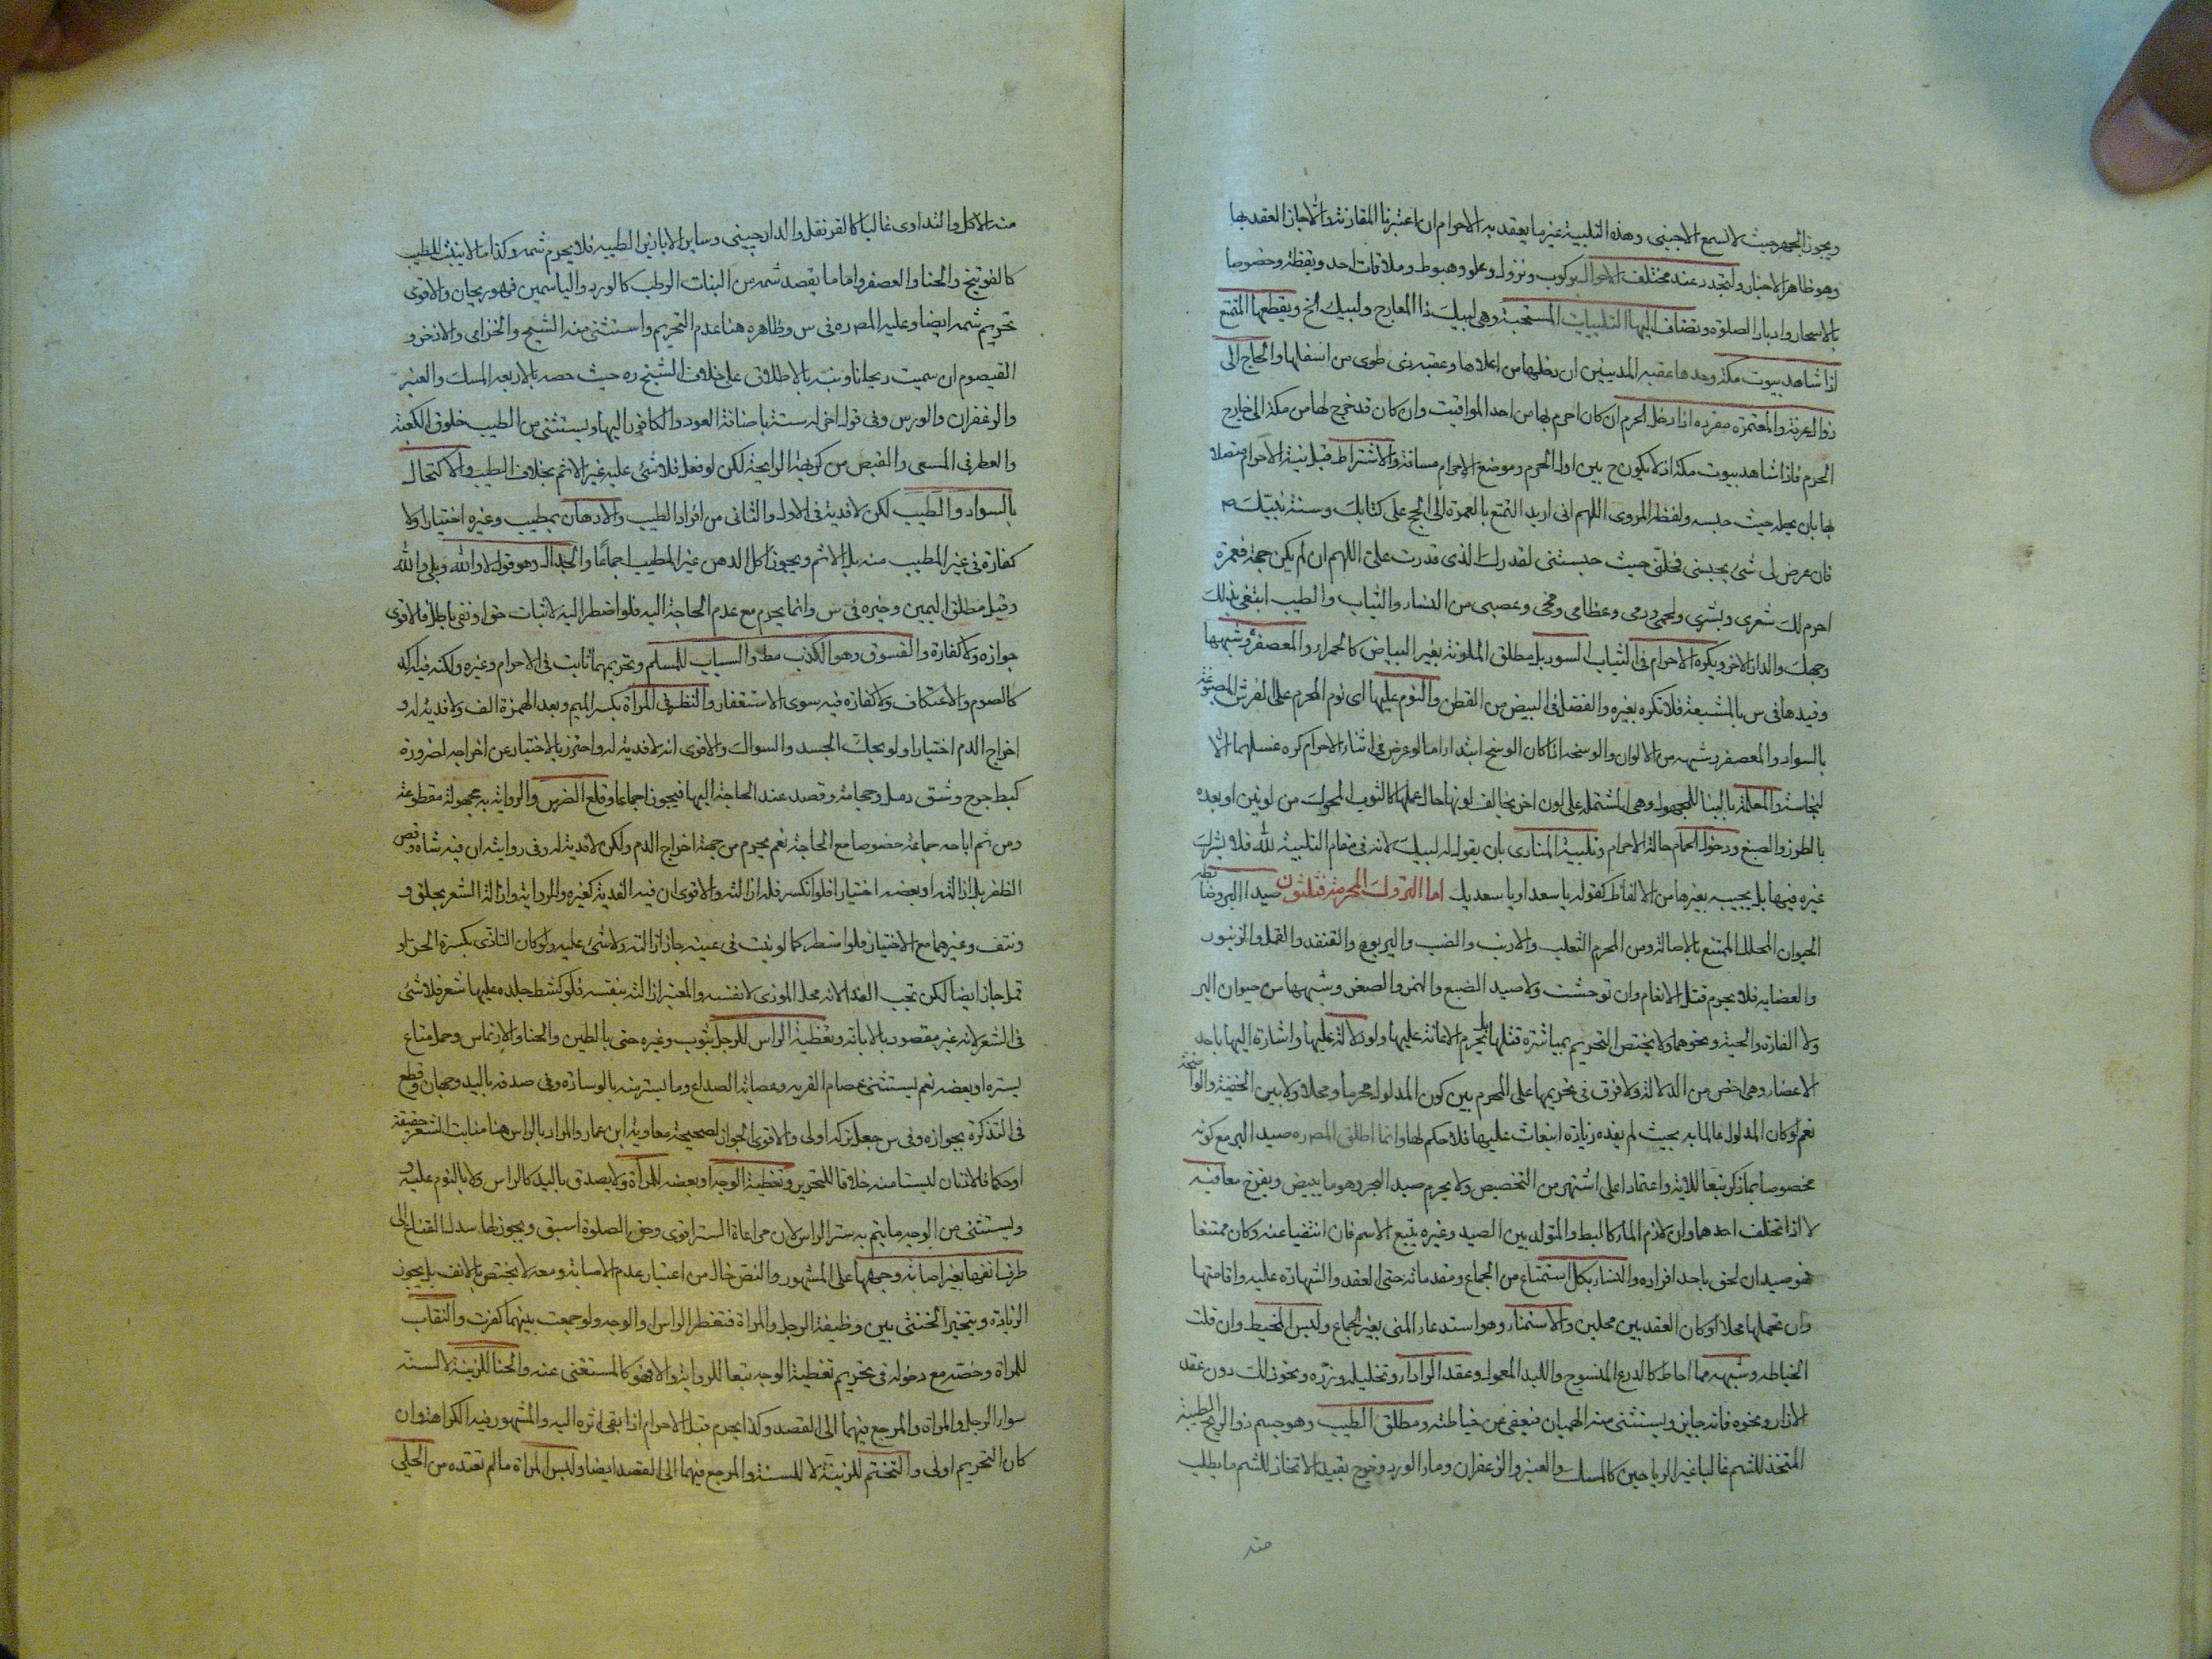 ويجوز الجهر حيث لا تسمع الاجنبى وهذه التلبية غير ما يعقد به الاحرام ان اعتبرنا المقارنة والا جاز العقد بها
وهو ظاهر الاخبار ولتجدد عند مختلف الاحوال بركوب ونزول وعلو وهبوط وملاقات احد ويقظة وخصوصا
بالاسحار وادبار الصلوة ويضاف اليها التلبيات المستحبة وهى لبيك ذا المعارج ولبيك الخ ويقطعها المتمتع
اذا شاهد بيوت مكة وحدها عقبه المدنيين ان دخلها من اعلاها وعقبه ذى طوى من اسفلها والحاج الى
زوال عرفة والمعتمر مفرده اذا دخل الحرم ان كان احرم بها من احد المواقيت وان كان قد خرج لها من مكة الى خارج
الحرم فاذا شاهد بيوت مكة اذ لا يكون ح بين اول الحرم وموضع الاحرام مسافة والاشتراط قبل نية الاحرام متصلا
بها بان يحله حيث حبسه ولفظه المروى اللهم انى اريد التمتع بالعمرة الى الحج على كتابك وسنة نبيك ص
فان عرض لى شئ يحبسنى فحلنى حيث حبستنى لقدرك الذى قدرت على اللهم ان لم يكن حجة فعمرة
احرم لك شعرى وبشرى ولحمى ودمى وعظامى ومخى وعصبى من النساء والثياب والطيب ابتغى بذلك
وجهك والدار الاخرة ويكره الاحرام فى الثياب السود بل مطلق الملونة بغير البياض كالحمراء والمعصفرة وشبهها
وقيدها فى س بالمشبعة فلا تكره بغيره والفضل فى البيض من القطن والنوم عليها اى نوم المحرم على الفرش المصبوغة
بالسواد والمعصفر وشبهه من الالوان والوسخه اذا كان الوسخ ابتداء اما لو عرض فى اثناء الاحرام كره غسلهما الا
لنجاسة والمعلمة بالبناء للمجهول وهى المشتملة على لون اخر يخالف لونها حال عملها كالثوب المحوك من لونين او بعده
بالطرز والصبغ ودخول الحمام حالة الاحرام وتلبية المنادى بان يقول له لبيك لانه فى مقام التلبية لله فلا يشرك
غيره فيها بل يجيبه بغيرها من الالفاظ كقوله يا سعد او يا سعديك اما التروك المحرمة فثلثون صيد البر وضابطه
الحيوان المحلل الممتنع بالاصالة ومن المحرم الثعلب والارنب والضب واليربوع والقنفذ والقمل والزنبور
والعضايه فلا يحرم قتل الانعام وان توحشت ولا صيد الضبع والنمر والصقر وشبهها من حيوان البر
ولا الفارة والحية ونحوهما ولا يختص التحريم بمباشرة قتلها بل يحرم الاعانة عليها ولو دلالة عليها واشارة اليها باحد
الاعضاء وهى اخص من الدلالة ولا فرق فى تحريمها على المحرم بين كون المدلول محرما ومحلا ولا بين الخفية والواضحة
نعم لو كان المدلول عالما به بحيث لم يفده زيادة انبعاث عليها فلا حكم لها وانما اطلق المصره صيد البر مع كونه
مخصوصا بما ذكر تبعا للاية واعتمادا على اشتهر من التخصيص ولا يحرم صيد البحر وهو ما يبيض ويفرخ معا فيه
لا اذا تخلف احدهما وان لازم الماء كالبط والمتولد بين الصيد وغيره يتبع الاسم فان انتفيا عنه وكان ممتنعا
فهو صيد ان لحق باحد افراده والنساء بكل استمتاع من الجماع ومقدماته حتى العقد والشهادة عليه واقامتها
وان تحملها محلا او كان العقد بين محلين والاستمناء وهو استدعاء المنى بغير الجماع ولبس المخيط وان قلت
الخياطه وشبهه مما احاط كالدرع المنسوج واللبد المعمول وعقد الرداء وتخليله وزره ونحو ذلك دون عقد
الازار ونحوه فانه جايز ويستثنى منه الهميان فيعفى عن خياطته ومطلق الطيب وهو جسم ذو الريح الطيبة
المتخذ للشم غالبا غير الرياحين كالمسك والعنبر والزعفران وماء الورد وخرج بقيد الاتخاذ للشم ما يطلب
منه
منه الاكل والتداوى غالبا كالقرنفل والدارچينى وساير الابازير الطيبه فلا يحرم شمه وكذا ما لا ينبت للطيب
كالفوتنج والحنا والعصفر واما ما يقصد شمه من النبات الرطب كالورد والياسمين فهو ريحان والاقوى
تحريم شمه ايضا وعليه المصره فى س وظاهره هنا عدم التحريم واستثنى منه الشيح والخزامى والاذخر و
القيصوم ان سميت ريحانا ونبه بالاطلاق على خلاف الشيخ ره حيث حصه بالاربعه المسك والعنبر
والزعفران والورس وفى قول اخر له ستة باضافة العود والكافور اليها ويستثنى من الطيب خلوق الكعبة
والعطر فى المسعى والقبض من كريهة الرايحة لكن لو فعل فلا شئ عليه غير الاثم بخلاف الطيب والاكتحال
بالسواد والطيب لكن لا فدية فى الاول والثانى من افراد الطيب والادهان بمطيب وغيره اختيارا ولا
كفارة فى غير المطيب منه بل الاثم ويجوز اكل الدهن غير المطيب اجماعا والجدال وهو قول لا والله وبلى والله
وقيل مطلق اليمين وخيره فى س وانما يحرم مع عدم الحاجة اليه فلو اضطر اليه لاثبات حق او نفى باطل فالاقوى
جوازه ولا كفارة والفسوق وهو الكذب مطلقا والسباب للمسلم وتحريمهما ثابت فى الاحرام وغيره ولكنه فيه اكد
كالصوم والاعتكاف ولا كفارة فيه سوى الاستغفار والنظر فى المرآة بكسر الميم وبعد الهمزة الف ولا فدية له و
اخراج الدم اختيارا ولو بحك الجسد والسواك والاقوى انه لا فدية له واحترز بالاختيار عن اخراجه لضرورة
كبط جرح وشق دمل وحجامة وفصد عند الحاجة اليها فيجوز اجماعا وقلع الضرس والرواية به مجهولة مقطوعة
ومن ثم اباحه جماعة خصوصا مع الحاجة نعم يحرم من جهة اخراج الدم ولكن لا فدية له وفى رواية ان فيه شاة وقص
الظفر بل ازالته او بعضه اختيارا فلو انكسر فله ازالته والاقوى ان فيه الفدية كغيره وللرواية وازالة الشعر بحلق و
ونتف وغيرهما مع الاختيار فلو اضطر كما لو نبت فى عينه جاز ازالته ولا شئ عليه ولو كان التاذى بكسرة الحر او
قمل جاز ايضا لكن تجب الفداء لانه محل الموذى لا نفسه والمعتبر ازالته بنفسه فلو كشط جلده عليها شعر فلا شئ
فى الشعر لانه غير مقصود بالابانه وتغطية الراس للرجل بثوب وغيره حتى بالطين والحنا والارتماس وحمل متاع
يستره او بعضه نعم يستثنى عصام القربه وعصابة الصداع وما يستر منه بالوسادة وفى صدقه باليد وجهان وقطع
فى التذكرة بجوازه وفى س جعل تركه اولى والاقوى الجواز لصحيحة معاوية ابن عمار والمراد بالراس هنا منابت الشعر حقيقة
او حكما فالاذنان ليستا منه خلافا للتحرير وتغطية الوجه او بعضه للمراة ولا يصدق باليد كالراس ولا بالنوم عليه و
ويستثنى من الوجه ما يتم به ستر الراس لان مراعاة الستر اقوى وحق الصلوة اسبق ويجوز لها سدل القناع الى
طرف انفها بغير اصابة وجهها على المشهور والنص خال من اعتبار عدم الاصابة ومعه لا يختص بالانف بل يجوز
الزيادة ويتخير الخنثى بين وظيفة الرجل والمراة فتغطى الراس او الوجه ولو جمعت بينهما كفرت والنقاب
للمراة وخصه مع دخوله فى تحريم تغطية الوجه تبعا للرواية والا فهو كالمستغنى عنه والحنا للزينة لا للسنة
سواء الرجل والمراة والمرجع فيهما الى القصد وكذا يحرم قبل الاحرام اذا بقى اثره اليه والمشهور فيه الكراهة وان
كان التحريم اولى والتختم للزينة لا للسنة والمرجع فيهما الى القصد ايضا ولبس المراة ما لم تعتده من الحلى